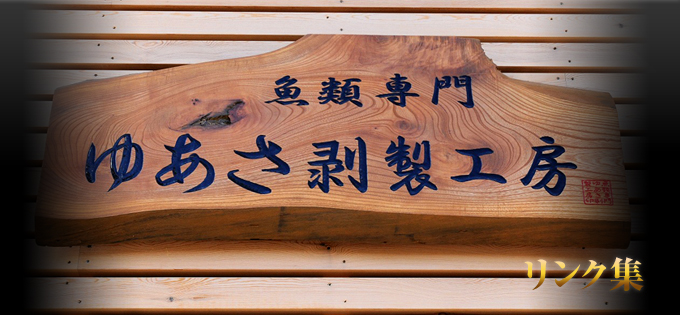 魚類専門
ゆあさ剥製工房
リンク集